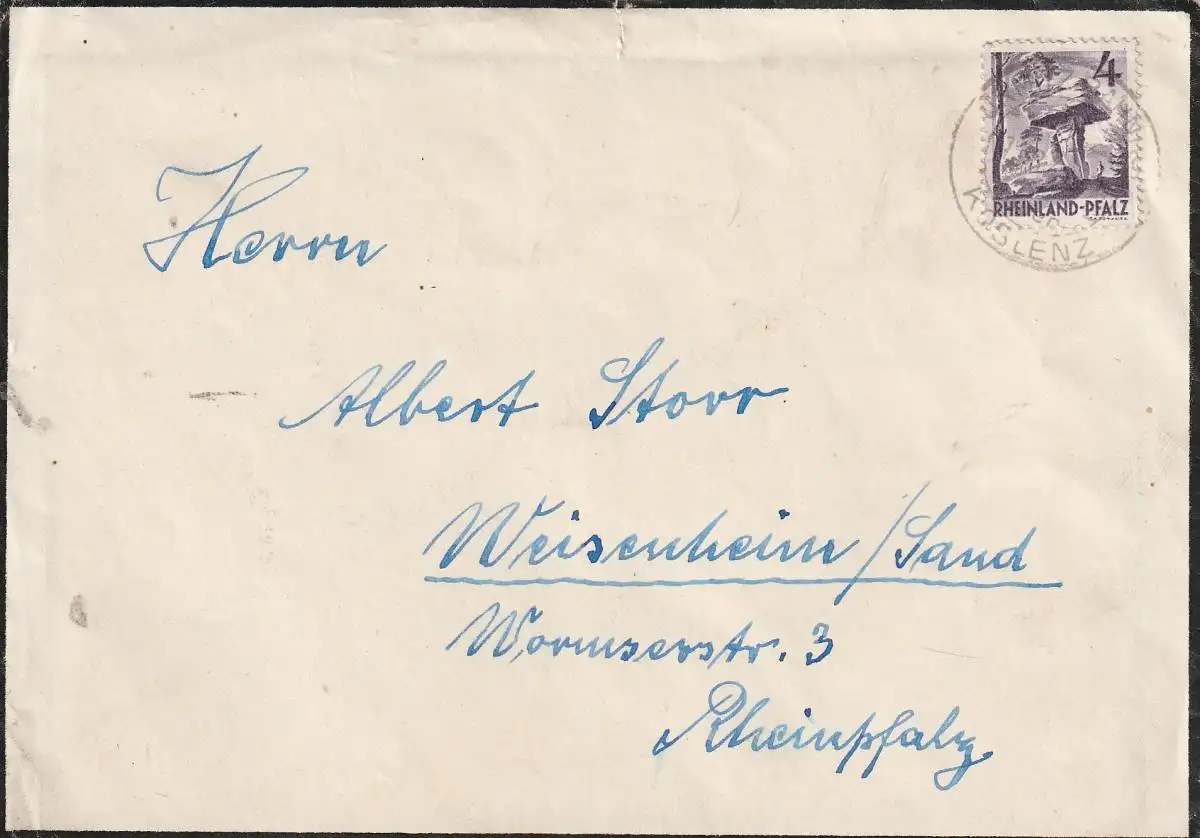 4
RHEINLAND-PFALZ
KOBLENZ
Herrn
Albert Storr
Weisenheim/Sand
Wormserstr. 3
Rheinpfalz